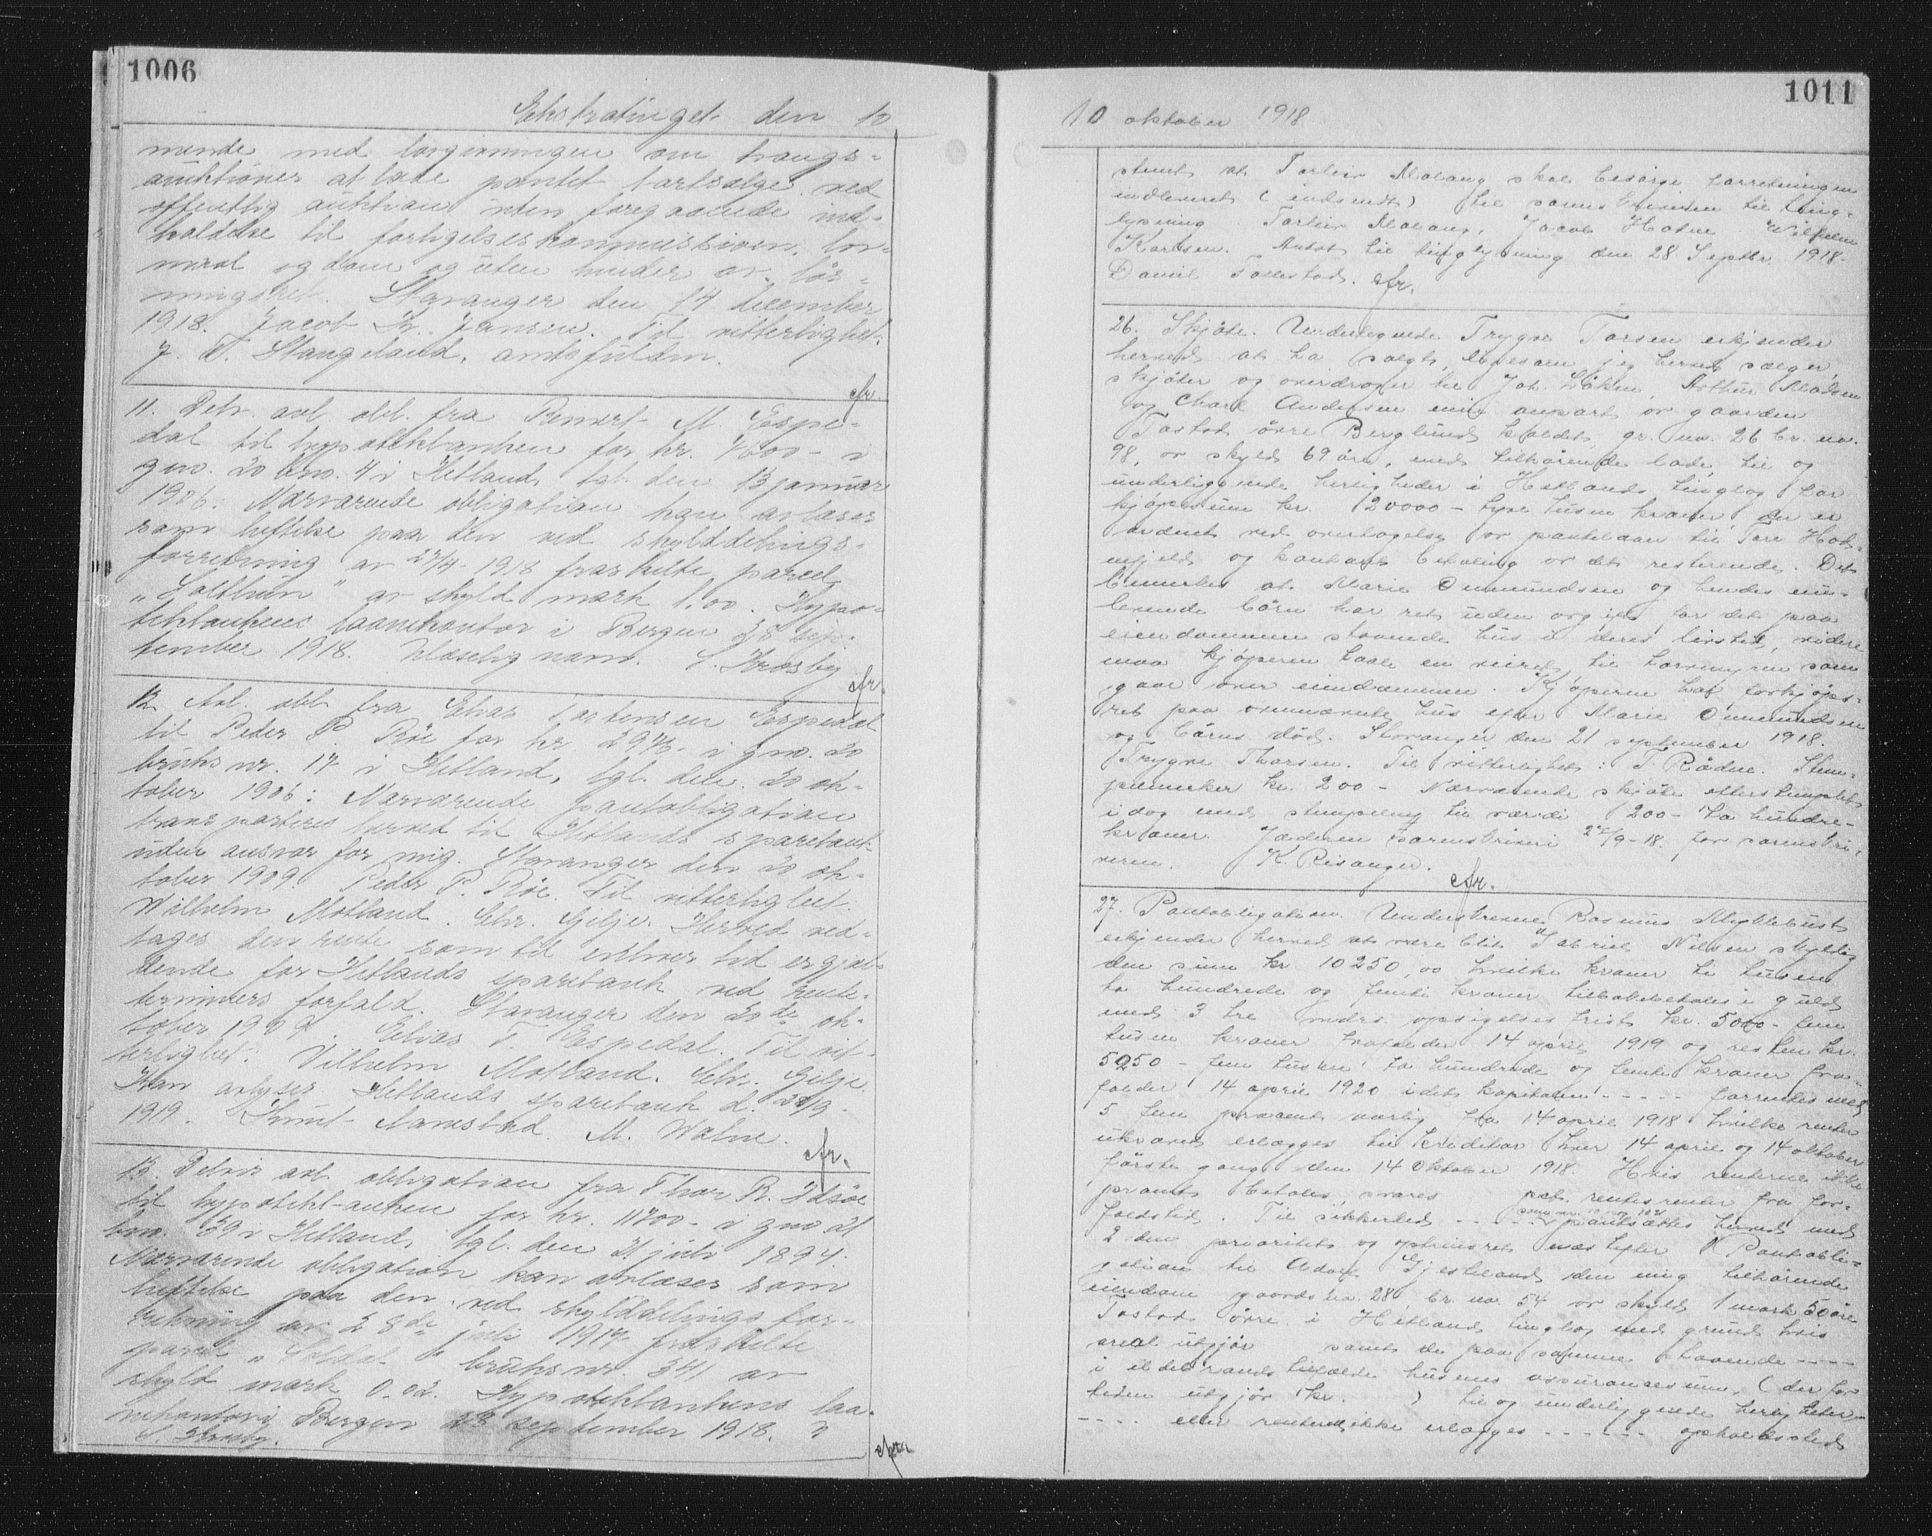 1006
Ekstratinget den 10
mende med lovgivningen om tvangs-
auktioner at lade pantet bortsælge ved
offentlig auktion uten foregaaende ind-
kaldelse til forligelseskommissionen, lov-
maal og dom og uten hinder av løs-
ningsret. Stavanger den 14 december
1918. Jacob Kr. Jansen. Til vitterlighet:
J. T. Stangeland, amtsfuldm.
cfr.
11. Delv. avl. obl. fra Reinert M Espe-
dal til hypotekbanken for kr. 4600- i
gno. 20 bno. 4 i Hetland, tgl. den 13 januar
1906: Nærværende obligation kan avlæses
som heftelse paa den ved skylddelings-
forretning av 29/4-1918 fraskilte parcel
"Solthun" av skyld mark 1.00. Hypo-
tekbankens laanekontor i Bergen sep-
tember 1918. Ulæselig navn. S. Krosby
cfr.
12. Avl. obl. fra Elias Tostensen Espedal
til Peder P. Bøe for kr. i gno. 20
bruksnr. 17 i Hetland, tgl. den 20 ok-
tober 1906: Nærværende pantobligation
transporteres herved til Hetlands sparebank
uten ansvar for mig. Stavanger den 20 ok-
tober 1909. Peder P. Bøe. Til vitterlighet:
Wilhelm Motland. Chr. Gilje. Herved ved-
tages den rente som til enhver tid er gjæl-
dende for Hetlands sparebank ved rente-
terminers forfald. Stavanger den 20de ok-
tober 1909. Elias T. Espedal. Til vit-
terlighet: Vilhelm Motland. Chr. Gilje
Kan avlyses Hetlands sparebank d.
1919. Knut Aamstad. M. Walne.
cfr.
13. Delvis avl. obligation fra Thor R. Idsøe
til hypotekbanken for kr. 11700- i gno 21
bno. 39 i Hetland, tgl. den 21 juli 1894.
Nærværende obligation kan avlæses som
heftelse paa den ved skylddelings for-
retning av 28de juli 1917 fraskilte
parcel "Soldal" bruksnr. 341 av
skyld mark 0.02. Hypotekbankens laa-
nekontor i Bergen september 1918.
S. Krosby.
cfr.
1011
10 oktober 1918
stemt at Torleiv Aloang skal besørge forretningen
indleveret (indsendt) til sorenskriveren til ting-
lysning Torleiv Aloang, Jacob Hodne Wilhelm
Karlsen. Antat til tinglysning den 28 Septbr. 1918.
Daniel Tollestad. cfr.
26. Skjøte. Undertegnede Trygve Torsen erkjender
herved at ha solgt, ligesom jeg herved sælger,
skjøter og overdrager til Joh. Løken, Arthur Madsen
og Charl Andersen min anpart av gaarden
Tastad øvre Berglund kaldet, gr. no. 26 br. no.
98, av skyld 69 øre, med tilhørende lade, til og
underliggende herligheder i Hetlands tinglag for
kjøpesum kr. 20000 - tyve tusen kroner der er
avgjort ved overtagelse av pantelaan til Tore Hods-
mjeld og kontant betaling av det resterende. Det
bemerkes at Marie Ommundsen og hendes um-
levende børn har ret uden avgift for det paa
eiendommen staaende hus i deres livstid, videre
maa kjøperen taale en veiret til torvmyren som
gaar over eiendommen. Kjøperne har forkjøps-
ret paa ovennævnte hus efter Marie Ommundsen
og børns død. Stavanger den 21 september 1918.
Trygve Thorsen. Til vitterlighet: T. Rådne. Stem-
pelmerker kr. 200 - Nærværende skjøte efterstemplet
idag med stempling til værdi 200 - to hundre-
kroner. Jæderen sorenskriveri 27/9-18, for sorenskri-
veren. K. Risanger.
cfr.
27. Pantobligation. Underskrevne Rasmus Myklebust
erkjender herved at være blit Gabriel Nilsen skyldig
den sum kr. 10250,00 hvilke kroner ti tusen
to hundrede og femti kroner tilbakebetales i guld
med 3 tre mdrs. opsigelses frist kr. 5000- fem
tusen kroner forfalder 14 april 1919 og resten kr.
5250 - fem tusen to hundrede og femti kroner for-
falder 14 april 1920 idet kapitalen - - - - - forrentes med
5 fem procent aarlig fra 14 april 1918 hvilke renter
ukrævet erlægges til kreditor hver 14 april og 14 oktober
første gang den 14 Oktober 1918. Hvis renterne ikke
promt betales svares pct. rentesrenter fra for-
faldstid. Til sikkerhed - - - - - pantsættes herved med
2 den prioritet og optrinsret næstefter Pantobli-
gation til Adolf Gjesteland den mig tilhørende
eiendom gaardsno. 28 br. no. 54 av skyld 1 mark 50 øre
Tastad øvre i Hetland tinglag med grund hvis
areal utgjør samt de paa samme staaende - - - -
i ildebrandstilfælde husenes assuransesum, (der for
tiden utgjør kr. ) til og underliggende herligheter -
- - - - eller renterne ikke erlægges - - - - - - opholdssted